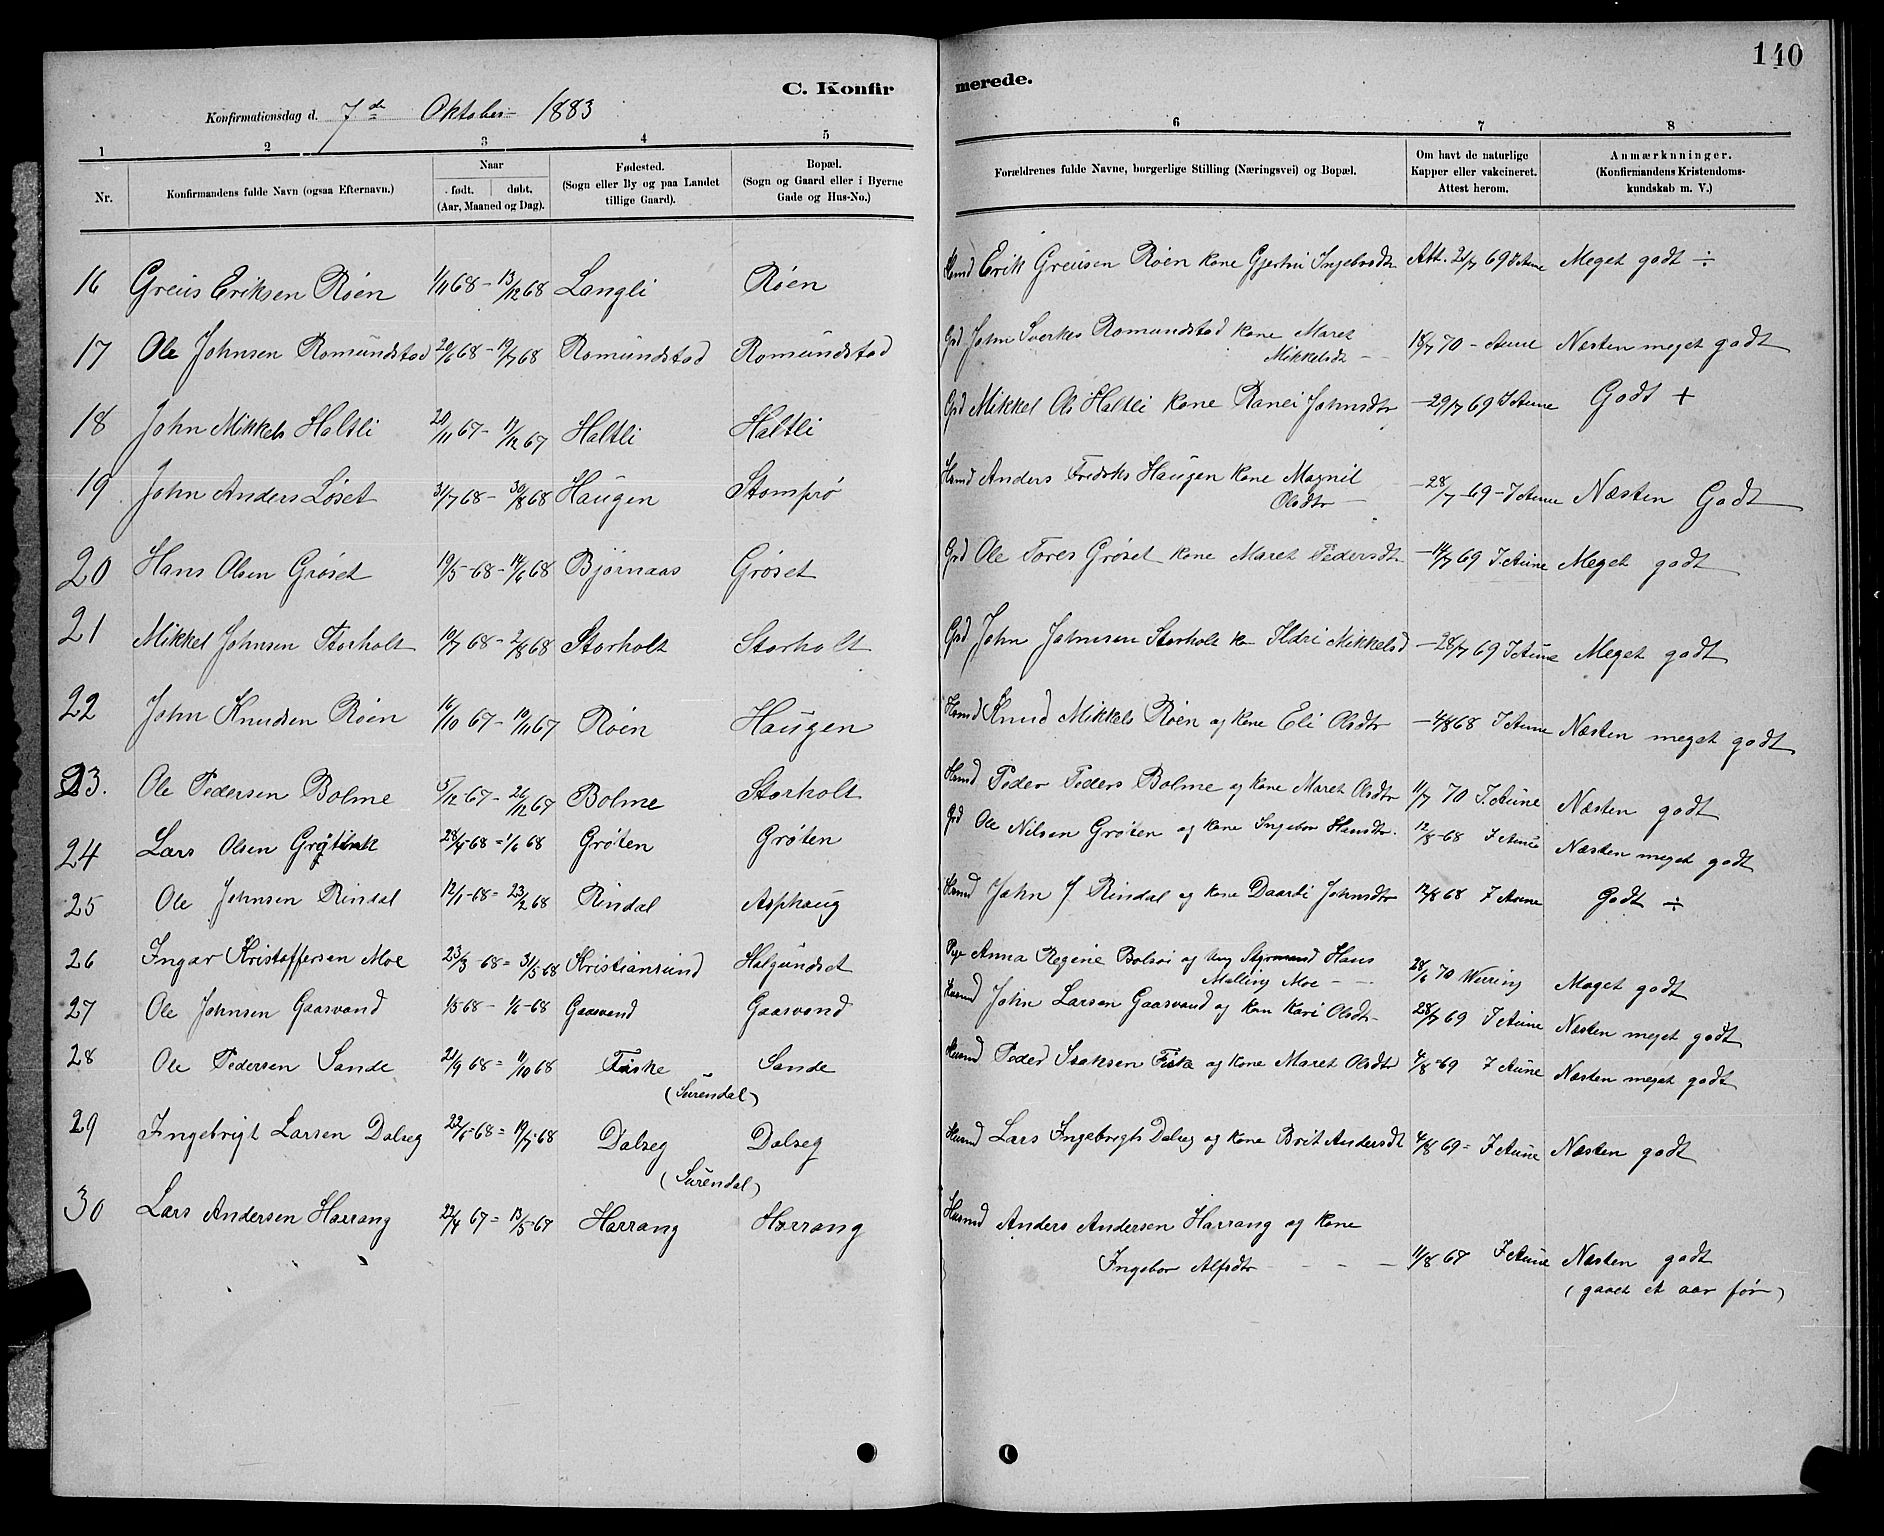 140
C. Konfir merede.
Konfirmationsdag d. 7de Oktober 1883
1 2 3 4 5 6 7 8
Nr. Konfirmandens fulde Navn (ogsaa Efternavn.) Naar født. døbt. (Aar, Maaned og Dag). Fødested. (Sogn eller By og paa Landet tillige Gaard). Bopæl. (Sogn og Gaard eller i Byerne Gade og Hus-No.) Forældrenes fulde Navne, borgerlige Stilling (Næringsvei) og Bopæl. Om havt de naturlige Kapper eller vakcineret. Attest herom. Anmærknninger. (Konfirmandens Kristendoms-kundskab m. V.)
16 Greius Eriksen Røen 1/11 68 - 13/12 68 Langli Røen Husmd Erik Greiusen Røen kone Gjertru Ingebrodtr Att. 21/7 69 J Aune Meget godt ÷
17 Ole Johnsen Romundstad 20/6 68 - 19/7 68 Romundstad Romundstad Grd John Sverkes Romundstad kone Maret
Mikkelsdt - 18/7 70 - Aune Næsten meget godt
18 John Mikkels Haltli 20/11 67 - 11/12 67 Haltli Haltli Grd Mikkel Ols Haltli kone Ranei Johnsdtr - 29/7 69 J Aune Godt +
19 John Anders Løset 31/7 68 - 30/8 68 Haugen Stomprø Husmd Anders Fredriks Haugen kone Magnil
Olsdtr - - 28/7 - 69 - J Aune Næsten Godt
20 Hans Olsen Grøset 19/5 - 68 - 14/6 68 Bjørnaas Grøset Grd Ole Tores Grøset kone Maret Pedersdt - 14/7 69 J. Aune Meget godt
21 Mikkel Johnsen Storholt 10/7 68 - 2/8 68 Storholt Storholt Grd John Johnsen Storholt ko Ildri Mikkelsd - 28/7 69 J Aune Meget godt
22 John Knudsen Røen 16/10 67 - 10/11 67 Røen Haugen Husmd Knud Mikkels Røen og kone Eli Olsdtr - 4/8 68 J Aune Næsten meget godt
23. Ole Pedersen Bolme 5/12 - 67 - 26/12 67 Bolme Storholt Husmd Peder Peders Bolme og kone Maret Olsdtr 11/7 70 J. Aune Næsten godt
24 Lars Olsen Grøten 28/4 - 68 = 1/6 68 Grøten Grøten Grd Ole Nilsen Grøten og kone Ingebor Hansdtr. 12/8 - 68 J Aune Næsten meget godt
25 Ole Johnsen Rindal 12/1 - 68 = 23/2 68 Rindal Asphaug Husmd John J Rindal og kone Daarti Johnsdtr 12/8 68 J Aune Godt ÷
26 Ingar Kristoffersen Moe 23/3 - 68 = 31/5 - 68 Kristiansund Halgundset Pige Anna Regine Bolsøi og Ung Styrmand Hans
Malling Moe - - 28/6 70 Werring Meget godt
27 Ole Johnsen Gaasvand 1/5 68 - 1/6 - 68 Gaasvand Gaasvand Husmd John Larsen Gaasvand og kon Kari Olsdt - 28/7 69 J Aune Næsten meget godt
28 Ole Pedersen Sande 21/9 68 = 11/10 68 Fiske Sande Husmd Peder Isaksen Fiske og kone Maret Olsdtr 4/8 - 69 J Aune Næsten meget godt
(Surendal)
29 Ingebrigt Larsen Dalseg 22/6 = 68 = 19/7 - 68 Dalseg Dalseg Husmd Lars Ingebrigts Dalseg og kone Brit Andersdt 4/8 69 = J Aune Næsten godt
(Surendal)
30 Lars Andersen Harrang 22/4 67 = 13/5 - 67 Harrang Harrang Husmd Anders Andersen Harrang og kone
Ingebor Alfsdtr - - - - 11/8 67 J Aune Næsten godt
(gaaet et aar før)